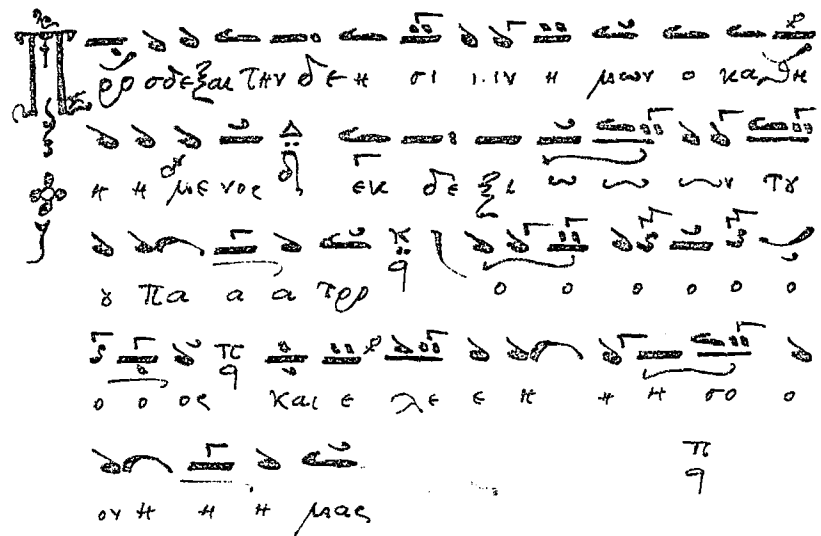 Π ρο σδεξαι την δε η σι ι ιν η μων ο κα θη
η η με νος Δ εκ δε ξι ω ω ων τȣ
ȣ πα α α τρο κ q ο ο ο ο ο ο
ο ο ος π q και ε λε ε η η η σο ο
ον η η η μας π q